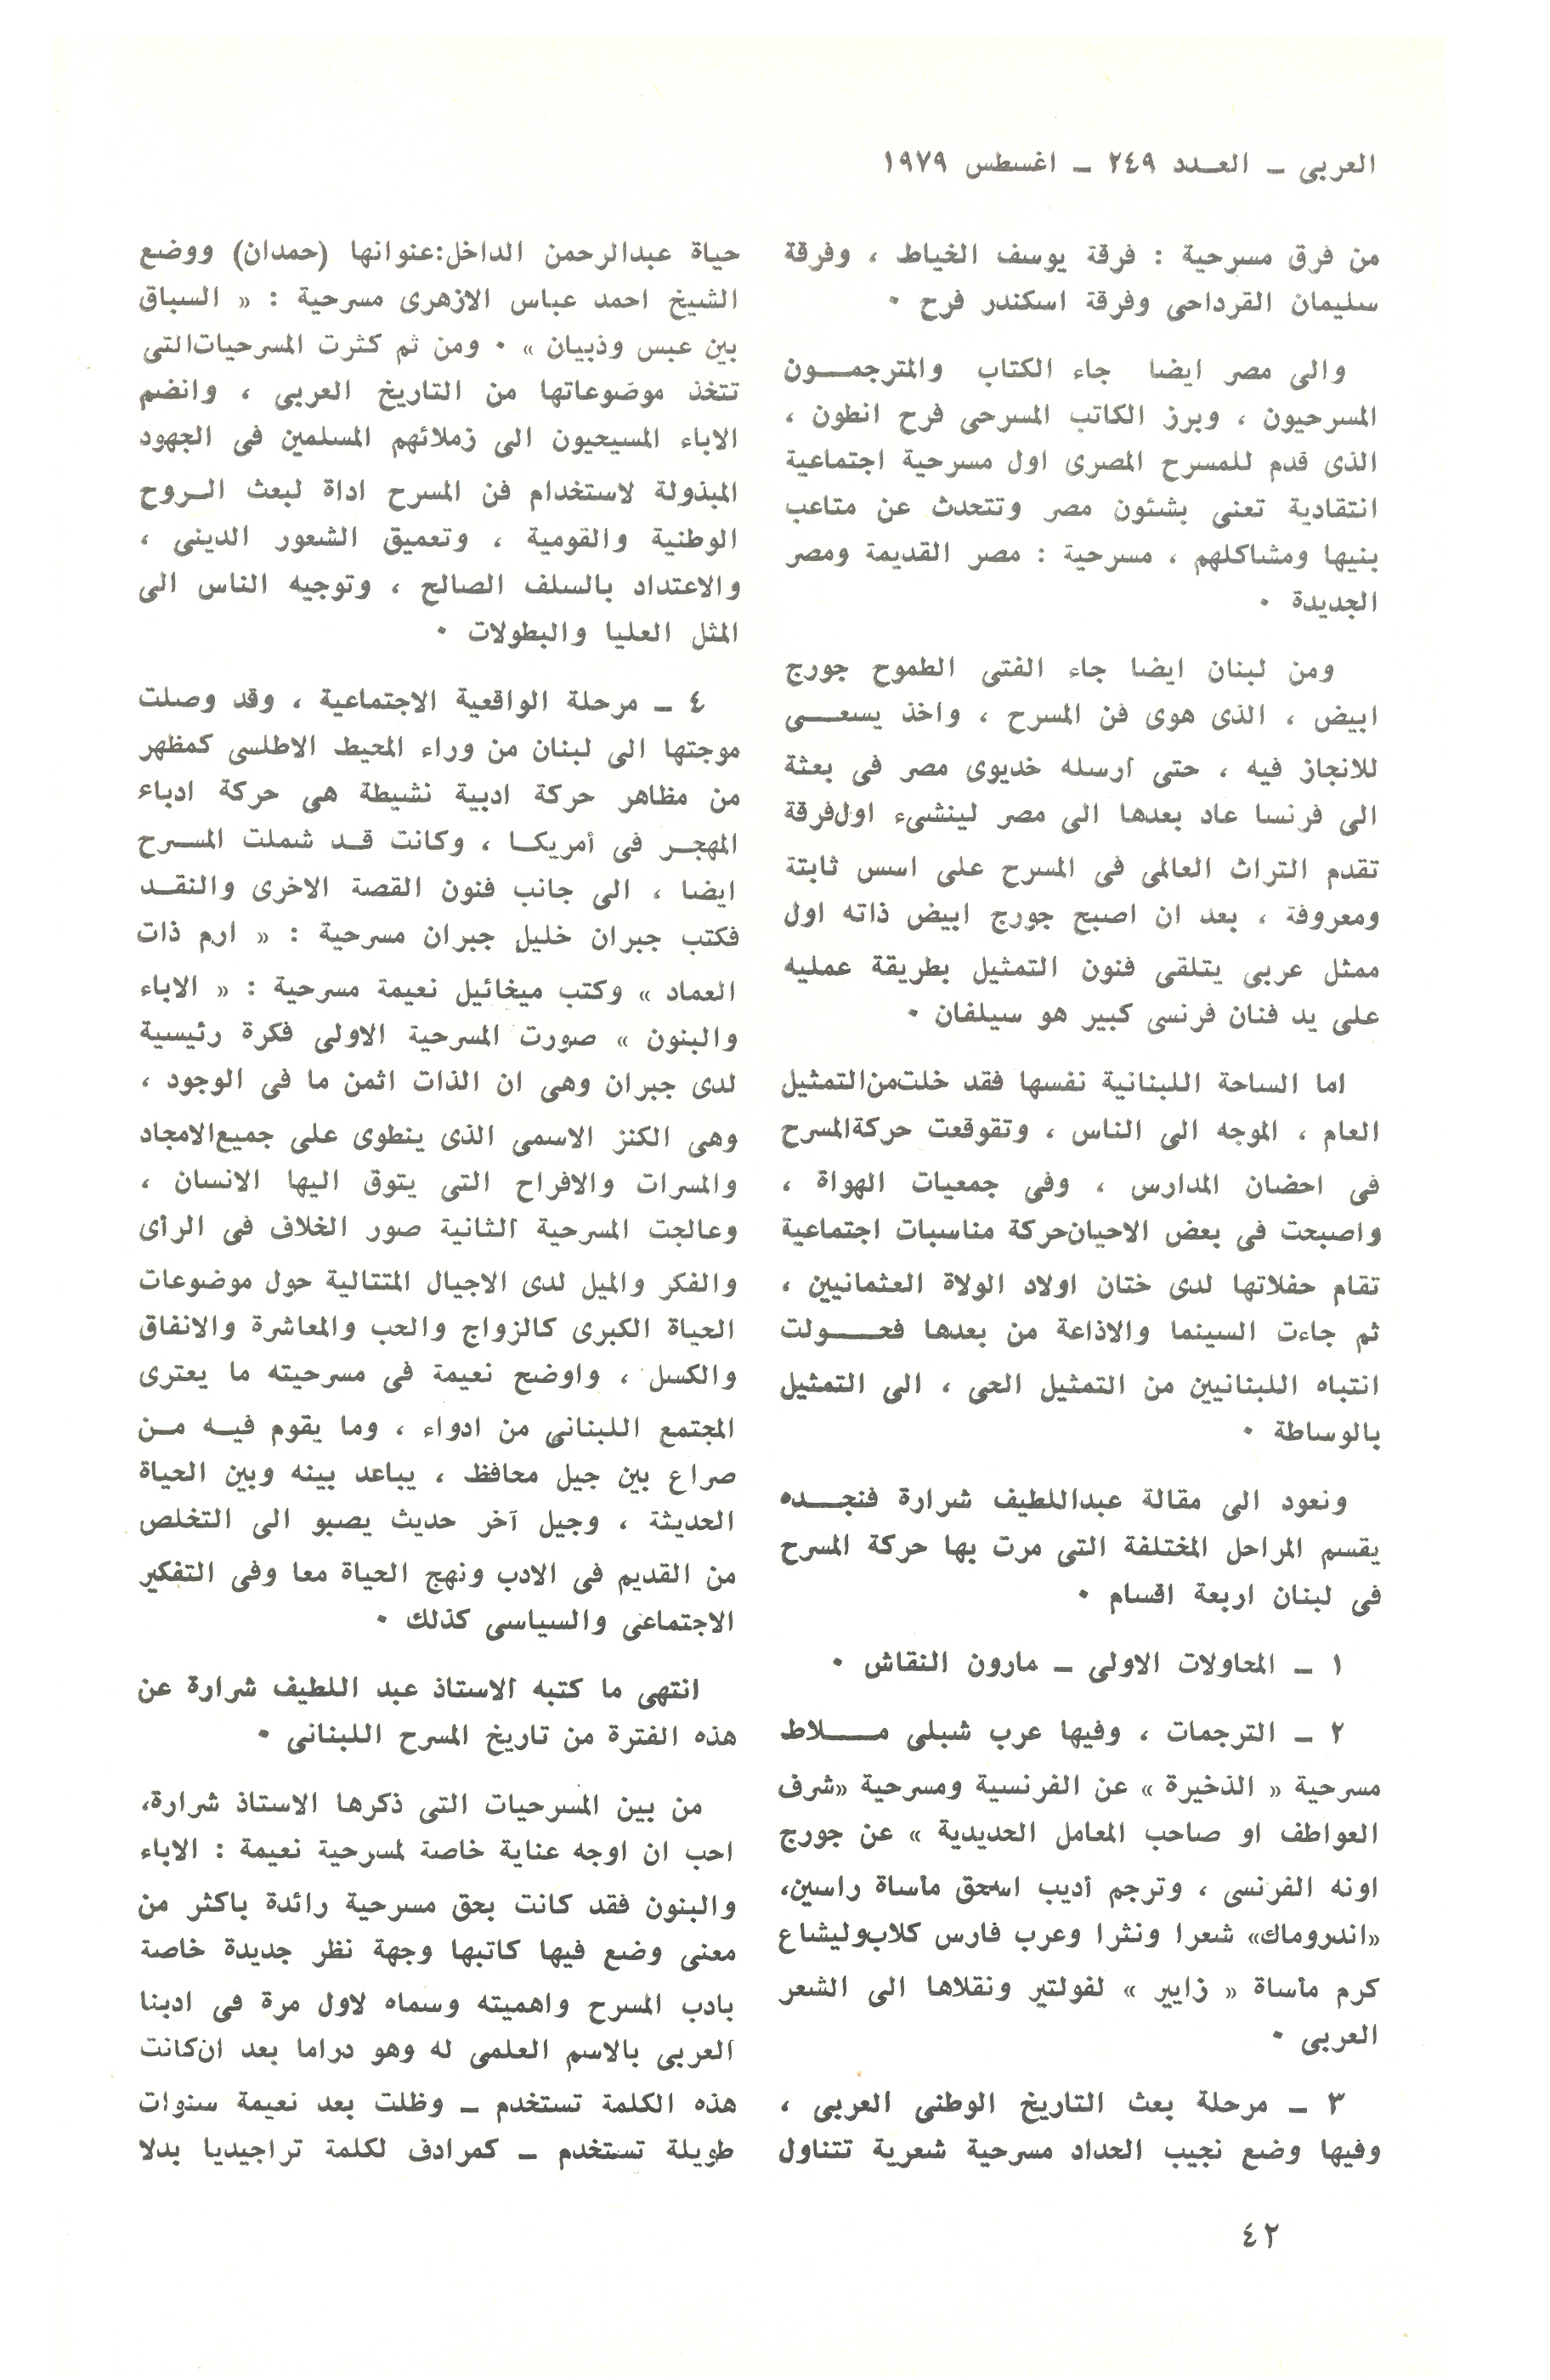 العربى ـ العـدد ٢٤٩ ـ اغسطس ١٩٧٩
من فرق مسرحية : فرقة يوسف الخياط ، وفرقة
سليمان القرداحى وفرقة اسكندر فرح ٠
والى مصر ايضا جاء الكتاب والمترجمـــون
المسرحيون ، وبرز الكاتب المسرحى فرح انطون ،
الذى قدم للمسرح المصرى اول مسرحية اجتماعية
انتقادية تعنى بشئون مصر وتتحدث عن متاعب
بنيها ومشاكلهم ، مسرحية : مصر القديمة ومصر
الجديدة ٠
ومن لبنان ايضا جاء الفتى الطموح جورج
ابيض ، الذى هوى فن المسرح ، واخذ يسعـــى
للانجاز فيه ، حتى ارسله خديوى مصر فى بعثة
الى فرنسا عاد بعدها الى مصر لينشىء اول فرقة
تقدم التراث العالمى فى المسرح على اسس ثابتة
ومعروفة ، بعد ان اصبح جورج ابيض ذاته اول
ممثل عربى يتلقى فنون التمثيل بطريقة عمليه
على يد فنان فرنسى كبير هو سيلفان ٠
اما الساحة اللبنانية نفسها فقد خلت من التمثيل
العام ، الموجه الى الناس ، وتقوقعت حركة المسرح
فى احضان المدارس ، وفى جمعيات الهواة ،
واصبحت فى بعض الاحيان حركة مناسبات اجتماعية
تقام حفلاتها لدى ختان اولاد الولاة العثمانيين ،
ثم جاءت السينما والاذاعة من بعدها فحـــولت
انتباه اللبنانيين من التمثيل الحى ، الى التمثيل
بالوساطة ٠
ونعود الى مقالة عبداللطيف شرارة فنجـــده
يقسم المراحل المختلفة التى مرت بها حركة المسرح
فى لبنان اربعة اقسام ٠
١ ـ المحاولات الاولى ـ مارون النقاش ٠
٢ ـ الترجمات ، وفيها عرب شبلى مـــلاط
مسرحية « الذخيرة » عن الفرنسية ومسرحية «شرف
العواطف او صاحب المعامل الحديدية » عن جورج
اونه الفرنسى ، وترجم أديب اسحق مأساة راسين،
«اندروماك» شعرا ونثرا وعرب فارس كلاب وليشاع
كرم مأساة « زايير » لفولتير ونقلاها الى الشعر
العربى ٠
٣ ـ مرحلة بعث التاريخ الوطنى العربى ،
وفيها وضع نجيب الحداد مسرحية شعرية تتناول
حياة عبدالرحمن الداخل:عنوانها (حمدان) ووضع
الشيخ احمد عباس الازهرى مسرحية : « السباق
بين عبس وذبيان » ٠ ومن ثم كثرت المسرحيات التى
تتخذ موضوعاتها من التاريخ العربى ، وانضم
الاباء المسيحيون الى زملائهم المسلمين فى الجهود
المبذولة لاستخدام فن المسرح اداة لبعث الـروح
الوطنية والقومية ، وتعميق الشعور الدينى ،
والاعتداد بالسلف الصالح ، وتوجيه الناس الى
المثل العليا والبطولات ٠
٤ ـ مرحلة الواقعية الاجتماعية ، وقد وصلت
موجتها الى لبنان من وراء المحيط الاطلسى كمظهر
من مظاهر حركة ادبية نشيطة هى حركة ادباء
المهجـر فى أمريكـا ، وكانت قـد شملت المسـرح
ايضا ، الى جانب فنون القصة الاخرى والنقـد
فكتب جبران خليل جبران مسرحية : « ارم ذات
العماد » وكتب ميخائيل نعيمة مسرحية : « الاباء
والبنون » صورت المسرحية الاولى فكرة رئيسية
لدى جبران وهى ان الذات اثمن ما فى الوجود ،
وهى الكنز الاسمى الذى ينطوى على جميع الامجاد
والمسرات والافراح التى يتوق اليها الانسان ،
وعالجت المسرحية الثانية صور الخلاف فى الرأى
والفكر والميل لدى الاجيال المتتالية حول موضوعات
الحياة الكبرى كالزواج والحب والمعاشرة والانفاق
والكسل ، واوضح نعيمة فى مسرحيته ما يعترى
المجتمع اللبنانى من ادواء ، وما يقوم فيـه مـن
صراع بين جيل محافظ ، يباعد بينه وبين الحياة
الحديثة ، وجيل آخر حديث يصبو الى التخلص
من القديم فى الادب ونهج الحياة معا وفى التفكير
الاجتماعى والسياسى كذلك ٠
انتهى ما كتبه الاستاذ عبد اللطيف شرارة عن
هذه الفترة من تاريخ المسرح اللبنانى ٠
من بين المسرحيات التى ذكرها الاستاذ شرارة،
احب ان اوجه عناية خاصة لمسرحية نعيمة : الاباء
والبنون فقد كانت بحق مسرحية رائدة باكثر من
معنى وضع فيها كاتبها وجهة نظر جديدة خاصة
بادب المسرح واهميته وسماه لاول مرة فى ادبنا
العربى بالاسم العلمى له وهو دراما بعد ان كانت
هذه الكلمة تستخدم ـ وظلت بعد نعيمة سنوات
طويلة تستخدم ـ كمرادف لكلمة تراجيديا بدلا
٤٢